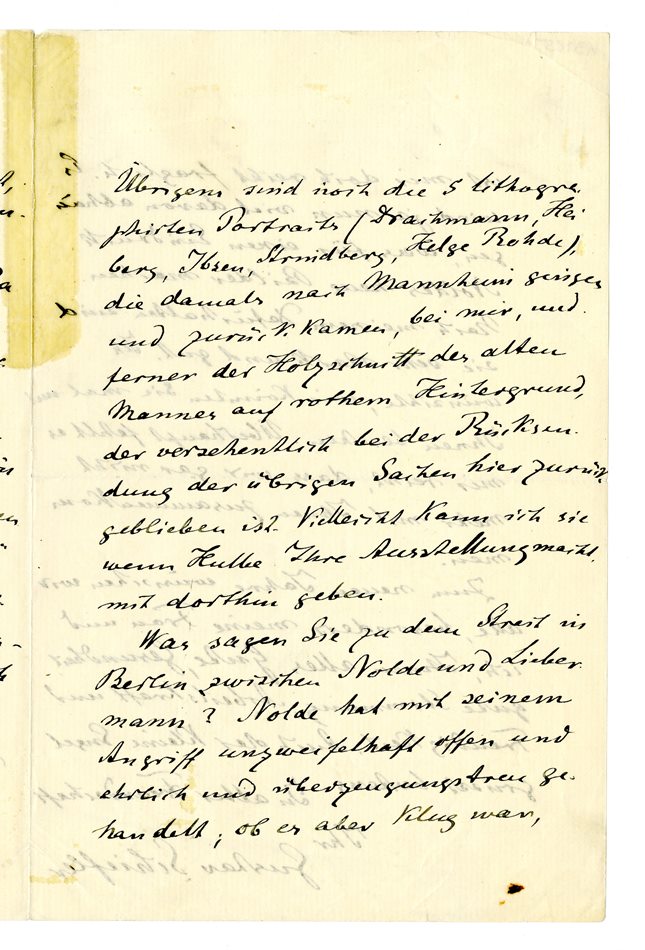 Übrigens sind noch die 5 lithogra-
phirten Portraits (Drachmann, Hei
berg, Ibsen, Strindberg, Helge Rohde),
die damals nach Mannheim gingen
und zurück kamen, bei mir, und
ferner der Holzschnitt des alten
Mannes auf rothem Hintergrund,
der versehentlich bei der Rücksen-
dung der übrigen Sachen hier zurück-
geblieben ist. Vielleicht kann ich sie
wenn Hulbe Ihre Ausstellung macht,
mit dorthin geben.
Was sagen Sie zu dem Streit in
Berlin zwischen Nolde und Lieber-
mann? Nolde hat mit seinem
Angriff unzweifelhaft offen und
ehrlich und überzeugungstreu ge-
handelt; ob er aber klug war,